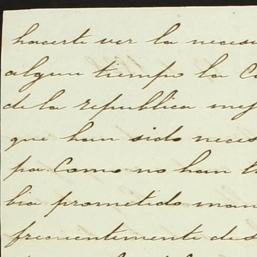 hacerte ver la neces
algun tiempo la C
de la republica mej
que han sido neces
pa Como no han t
bia prometido man
frecuentemente des